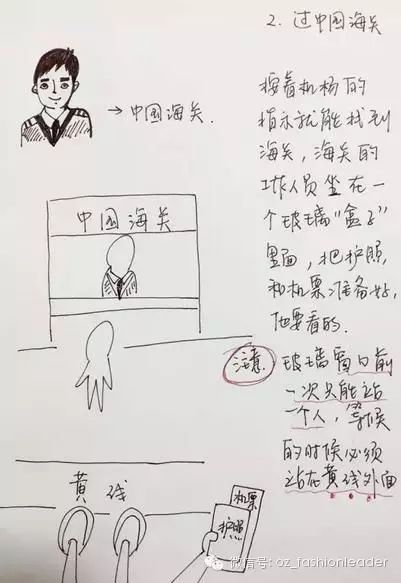 2. 过中国海关
→中国海关.
按着机场的
指示就能找到
海关，海关的
工作人员坐在一
个玻璃“盒子”
里面，把护照
和机票准备好，
他要看的.
中国海关
注意.
玻璃窗口前
一次只能站
一个人，等候
的时候必须
站在黄线外面
黄线
机票
护照
微信号: oz_fashionleader